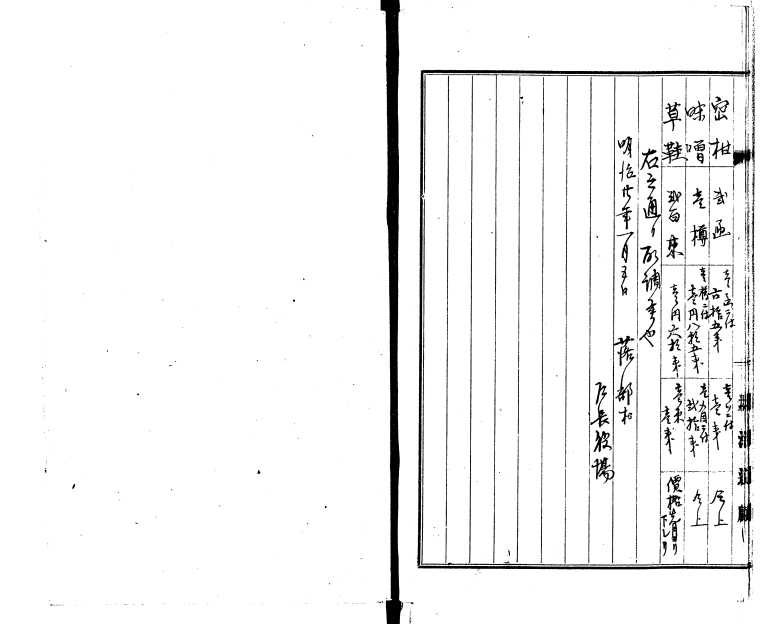 密柑 弐函 壱函ニ付六拾五銭 壱ツニ付壱銭 仝上
味噌 壱樽 壱樽ニ付壱円八拾五銭 壱〆目ニ付弐拾銭 仝上
草鞋 弐百束 壱円六拾銭 壱束壱銭 價格先月ヨリ下レリ
右之通リ取調候也
明治廿年一月五日 落部村
戸長役場